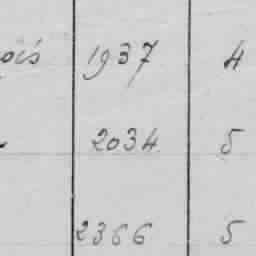 ois 1937 4
2034 5
2366 5